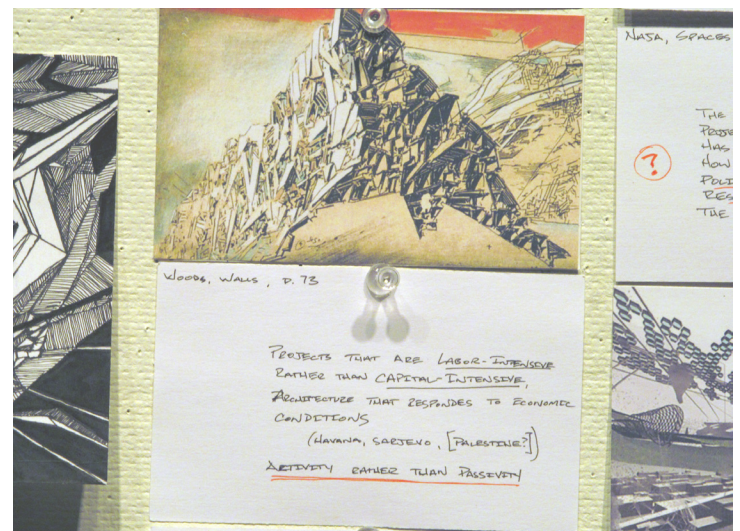 WOODS, WALLS, P. 73
PROJECTS THAT ARE LABOR-INTENSIVE
RATHER THAN CAPITAL-INTENSIVE,
ARCHITECTURE THAT RESPONDES TO ECONOMIC
CONDITIONS
(HAVANA, SARJEVO, [PALESTINE?])
ACTIVITY RATHER THAN PASSIVITY
NAJA, SPACES
?
THE
PROJE
HAS
HOW
POLI
RES
THE